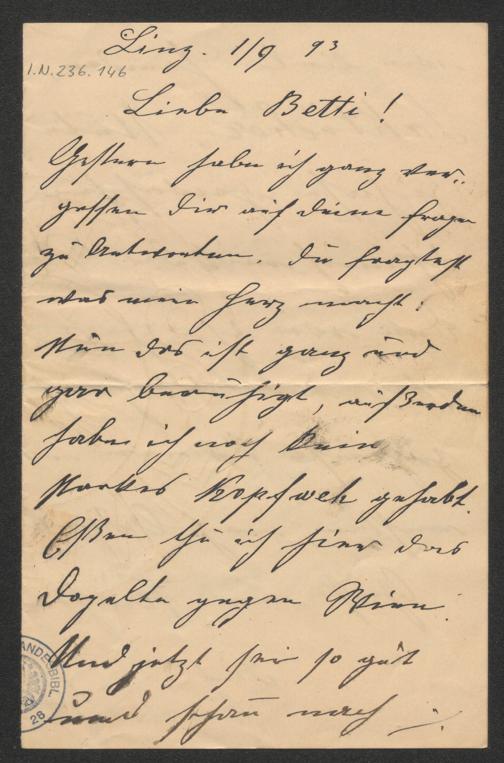 Linz. 1/9 93
I.N.236.146
Liebe Betti!
Gestern habe ich ganz ver-
gessen dir auf deine fragen
zu Antworten. du fragtest
was mein Herz macht:
Nun das ist ganz und
gar beruhigt, außerdem
habe ich noch kein
starkes Kopfweh gehabt.
Eßen thu ich hier das
Dopelte gegen Wien.
Und jetzt sei so gut
und schau nach
ANDESBIBL.
28